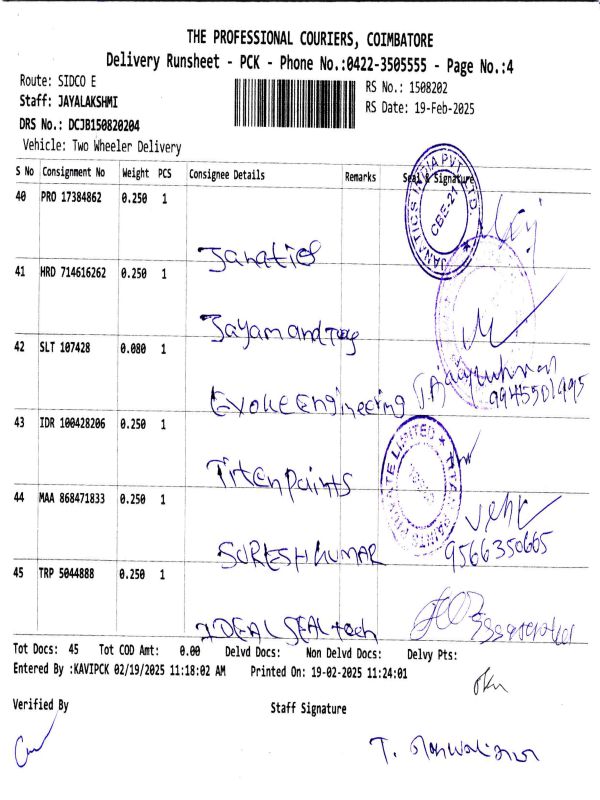 THE PROFESSIONAL COURIERS, COIMBATORE
Delivery Runsheet - PCK - Phone No.:0422-3505555 - Page No.:4
Route: SIDCO E
RS No.: 1508202
Staff: JAYALAKSHMI
RS Date: 19-Feb-2025
DRS No.: DCJB150820204
Vehicle: Two Wheeler Delivery
S No Consignment No Weight PCS Consignee Details Remarks Seal & Signature
JANATICS INDIA PVT. LTD.
CBE-21
40 PRO 17384862 0.250 1
Janatics
41 HRD 714616262 0.250 1
Jayam and Toy
42 SLT 107428 0.080 1
Evoke Engineering
9945501995
43 IDR 100428206 0.250 1
Titen Paints
44 MAA 868471833 0.250 1
SURESH KUMAR
9566350665
45 TRP 5044888 0.250 1
IDEAL SEAL tech
Tot Docs: 45 Tot COD Amt: 0.00 Delvd Docs: Non Delvd Docs: Delvy Pts:
Entered By :KAVIPCK 02/19/2025 11:18:02 AM Printed On: 19-02-2025 11:24:01
Verified By Staff Signature